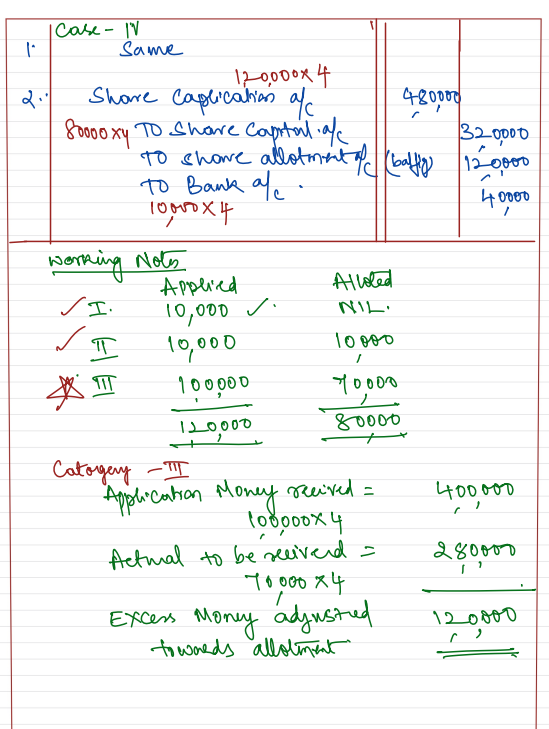 Case - IV
1. Same
1,20,000 x 4
2. Share Application a/c 4,80,000
80000 x 4 To Share Capital a/c 3,20,000
To share allotment a/c (bal/fg) 1,20,000
To Bank a/c. 40,000
10,000 x 4
Working Notes
Applied Alloted
I. 10,000 NIL.
II 10,000 10,000
III 1,00,000 70,000
1,20,000 80,000
Category - III
Application Money received = 4,00,000
1,00,000 x 4
Actual to be received = 2,80,000
70,000 x 4
Excess Money adjusted 1,20,000
towards allotment